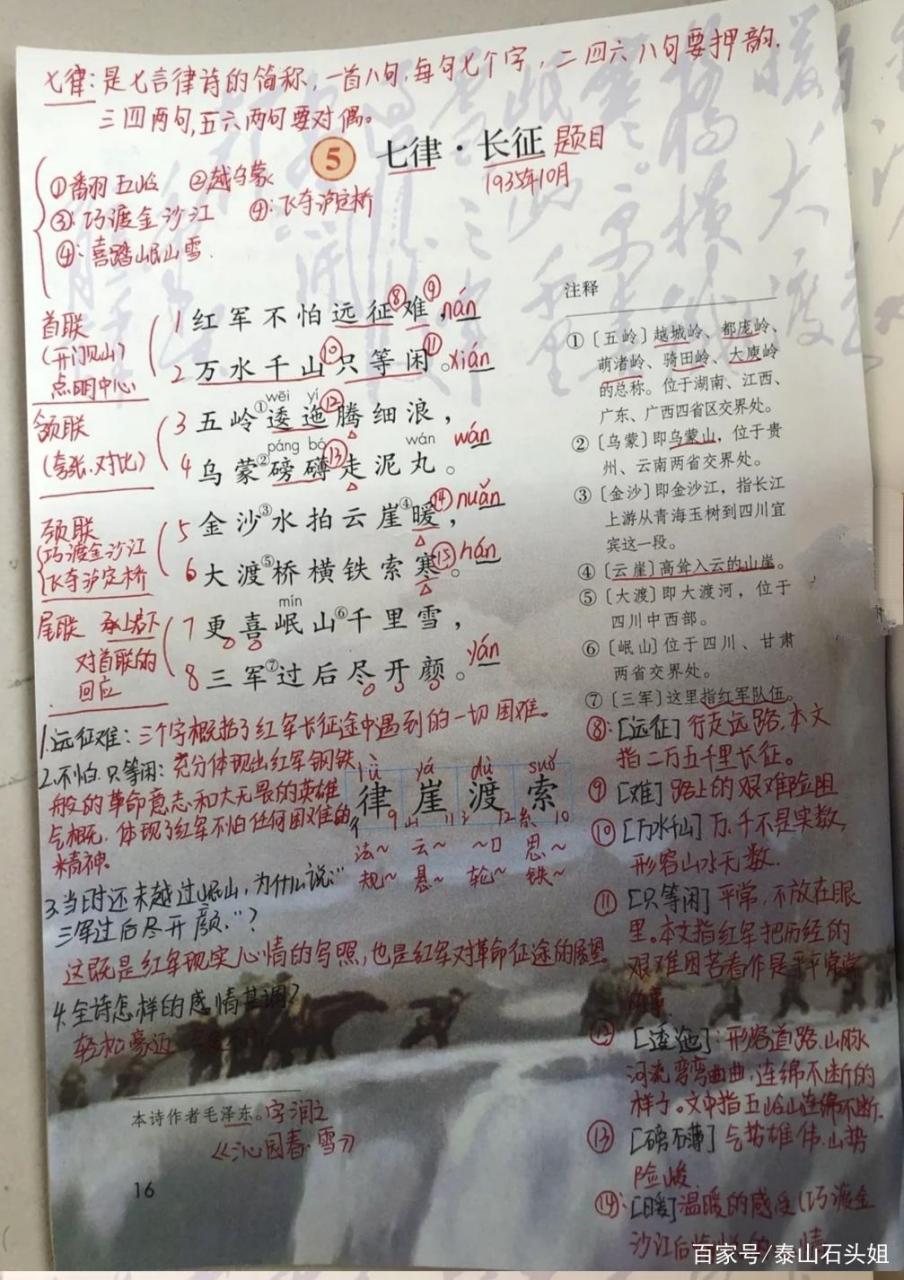 七律:是七言律诗的简称,一首八句,每句七个字,二四六八句要押韵,
三四两句,五六两句要对偶。
5 七律·长征 题目
1935年10月
①翻越五岭 ②越乌蒙
③:巧渡金沙江 ④:飞夺泸定桥
④:喜踏岷山雪.
首联
(开门见山)
点明中心
1 红军不怕远征⑧难⑨,nán
2 万水千山⑩只等闲⑪。xián
颔联
(夸张.对比)
wēi yí
3 五岭①逶迤⑫腾细浪,
páng bó wán
4 乌蒙②磅礴⑬走泥丸。wán
颈联
巧渡金沙江
飞夺泸定桥
5 金沙③水拍云崖④暖⑭,nuǎn
6 大渡⑤桥横铁索寒⑮。hán
尾联 承上启下
对首联的
回应
mín
7 更喜岷山⑥千里雪,
8 三军⑦过后尽开颜。yán
注释
①〔五岭〕越城岭、都庞岭、
萌渚岭、骑田岭、大庾岭
的总称。位于湖南、江西、
广东、广西四省区交界处。
②〔乌蒙〕即乌蒙山,位于贵
州、云南两省交界处。
③〔金沙〕即金沙江,指长江
上游从青海玉树到四川宜
宾这一段。
④〔云崖〕高耸入云的山崖。
⑤〔大渡〕即大渡河,位于
四川中西部。
⑥〔岷山〕位于四川、甘肃
两省交界处。
⑦〔三军〕这里指红军队伍。
⑧:[远征]行走远路,本文
指二万五千里长征。
⑨[难]路上的艰难险阻
⑩[万水千山]万,千不是实数,
形容山水无数.
⑪[只等闲]平常,不放在眼
里。本文指红军把历经的
艰难困苦看作是平平常常
⑫[逶迤]:形容道路.山脉
河流弯弯曲曲,连绵不断的
样子。文中指五岭山连绵不断.
⑬[磅礴]气势雄伟.山势
险峻.
⑭:[暖]温暖的感受(巧渡金
沙江后
1.远征难:三个字概括了红军长征途中遇到的一切困难。
2.不怕.只等闲:充分体现出红军钢铁
般的革命意志和大无畏的英雄
气概,体现了红军不怕任何困难的
精神.
lǜ yá dù suǒ
律 崖 渡 索
彳 9 山 11 氵 12 糸 10
法~ 云~ ~口 思~
规~ 悬~ 轮~ 铁~
3.当时还未越过岷山,为什么说:“
三军过后尽开颜.”?
这既是红军现实心情的写照,也是红军对革命征途的展望
4.全诗怎样的感情基调?
轻松豪迈
本诗作者毛泽东。字润之
《沁园春·雪》
16
百家号/泰山石头姐